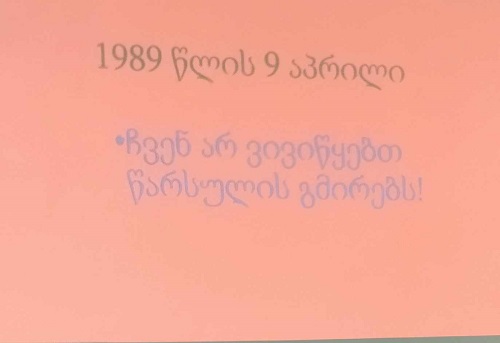 1989 წლის 9 აპრილი
•ჩვენ არ ვივიწყებთ
წარსულის გმირებს!